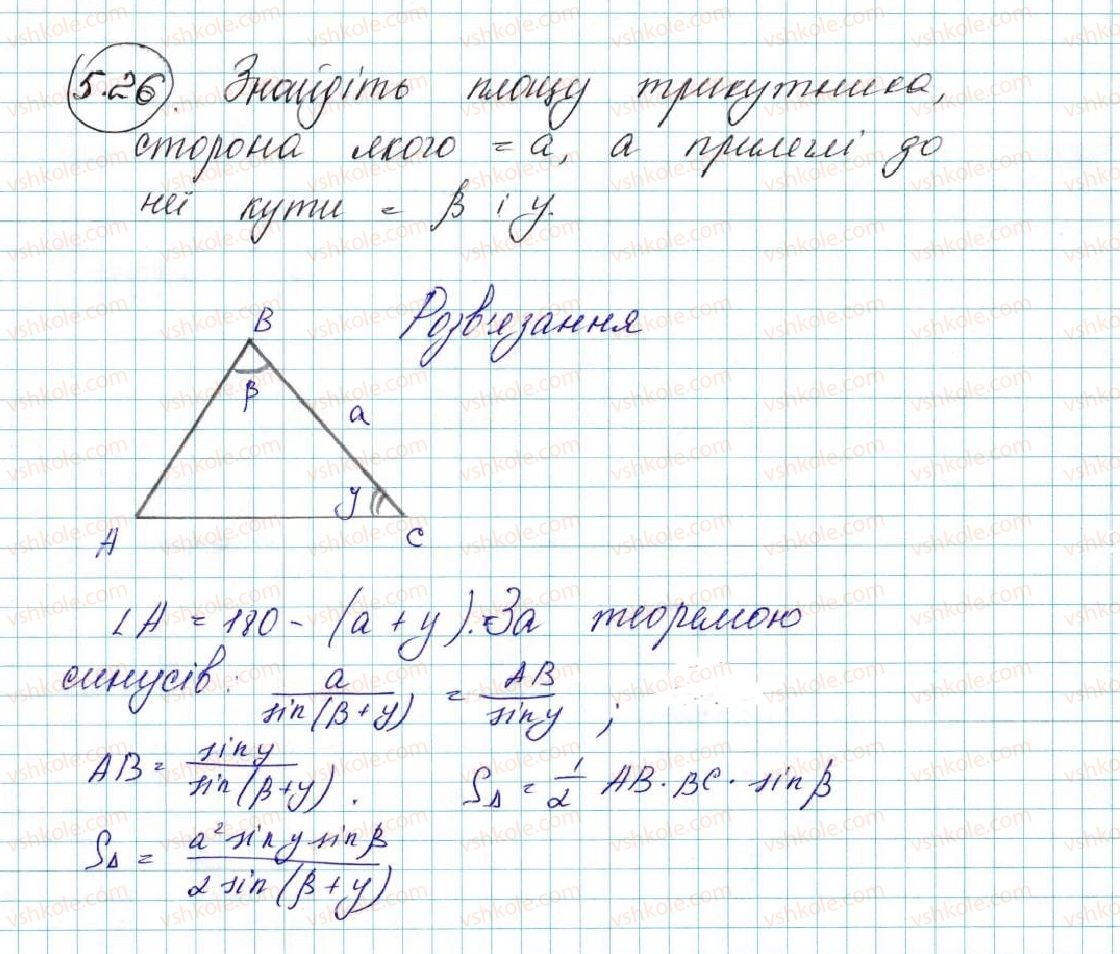 5.26. Знайдіть площу трикутника,
сторона якого = a, а прилеглі до
неї кути = β і γ.
Розв'язання
B
β
a
γ
A
C
∠A = 180 - (a + γ). За теоремою
синусів: a / sin(β + γ) = AB / sin γ ;
AB = sin γ / sin(β + γ) . S△ = 1/2 AB · BC · sin β
S△ = a² sin γ sin β / 2 sin(β + γ)